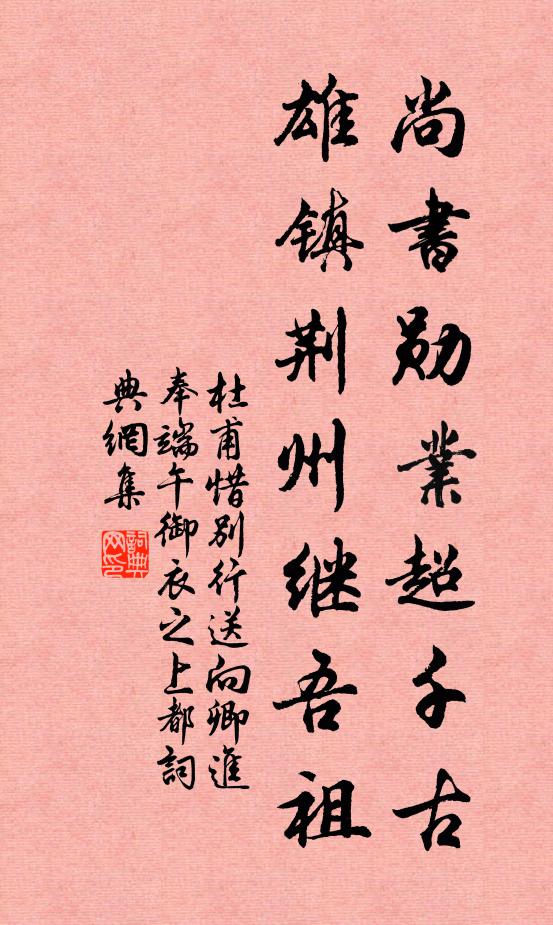 尚書勋業超千古
雄镇荆州继吾祖
杜甫惜别行送向卿進
奉端午御衣之上都詞
典網集
詞典网印